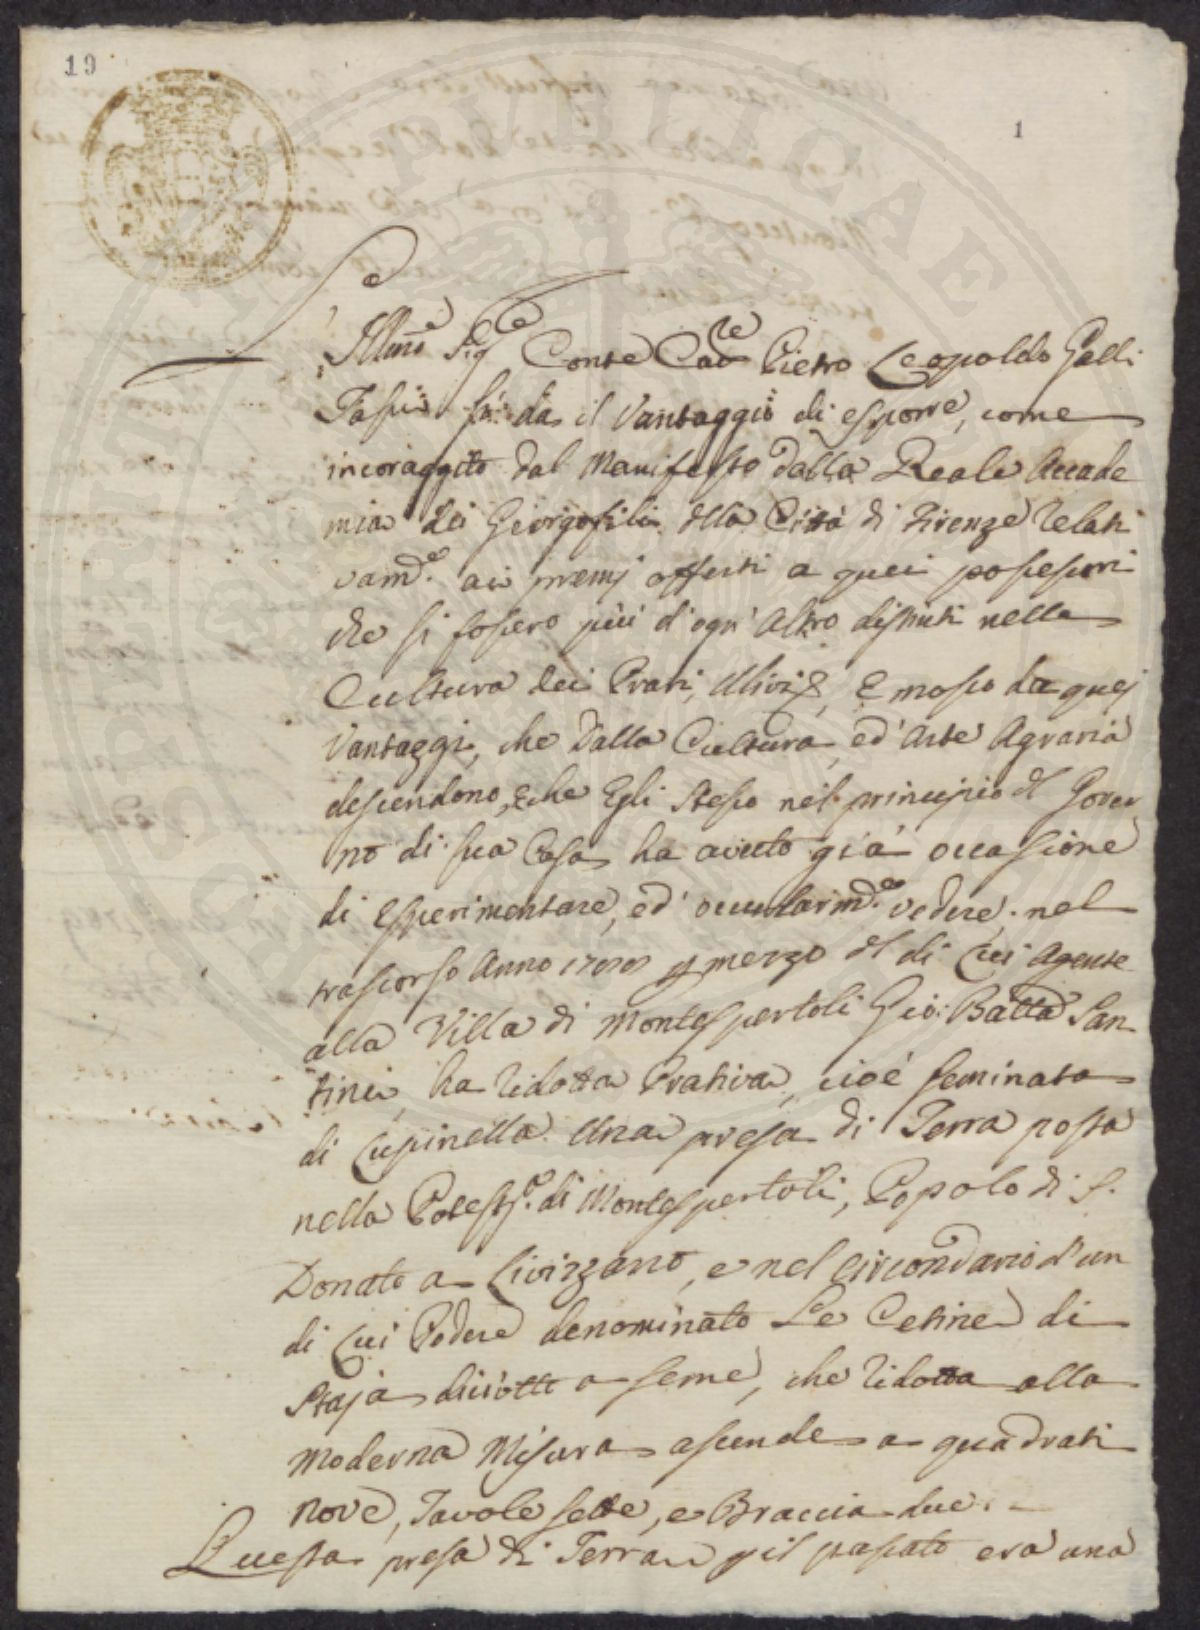 19
1
Illmo Sig.re Conte Cav.re Pietro Leopoldo Galli
Tassi da il Vantaggio di esporre, come
incoraggito dal Manifesto dalla Reale Accade
mia dei Georgofili della Città di Firenze relati
vam.e ai premj offerti a quei possessori
che si fossero più d'ogn'Altro distinti nella
Cultura dei Prati, Ulivi &, E mosso da quei
Vantaggi, che dalla Cultura, ed'Arte Agraria
descendono, e che Egli stesso nel principio del Gover
no di sua Casa ha avuto già occasione
di esperimentare, ed' occularm.e vedere, nel
trascorso Anno p mezzo del di Cui Agente
alla Villa di Montespertoli Gio: Batta San
tini, ha ridotta Prativa, cioè seminata
di Lupinella Una presa di Terra posta
nella Potest.a di Montespertoli, Popolo di S.
Donato a Livizzano, e nel circondario d'un
di Cui Podere denominato Le Cetine di
Staja diciotto a seme, che ridotta alla
Moderna Misura ascende a quadrati
nove, Tavole sette, e Braccia due.
Questa presa di Terra p il passato era una